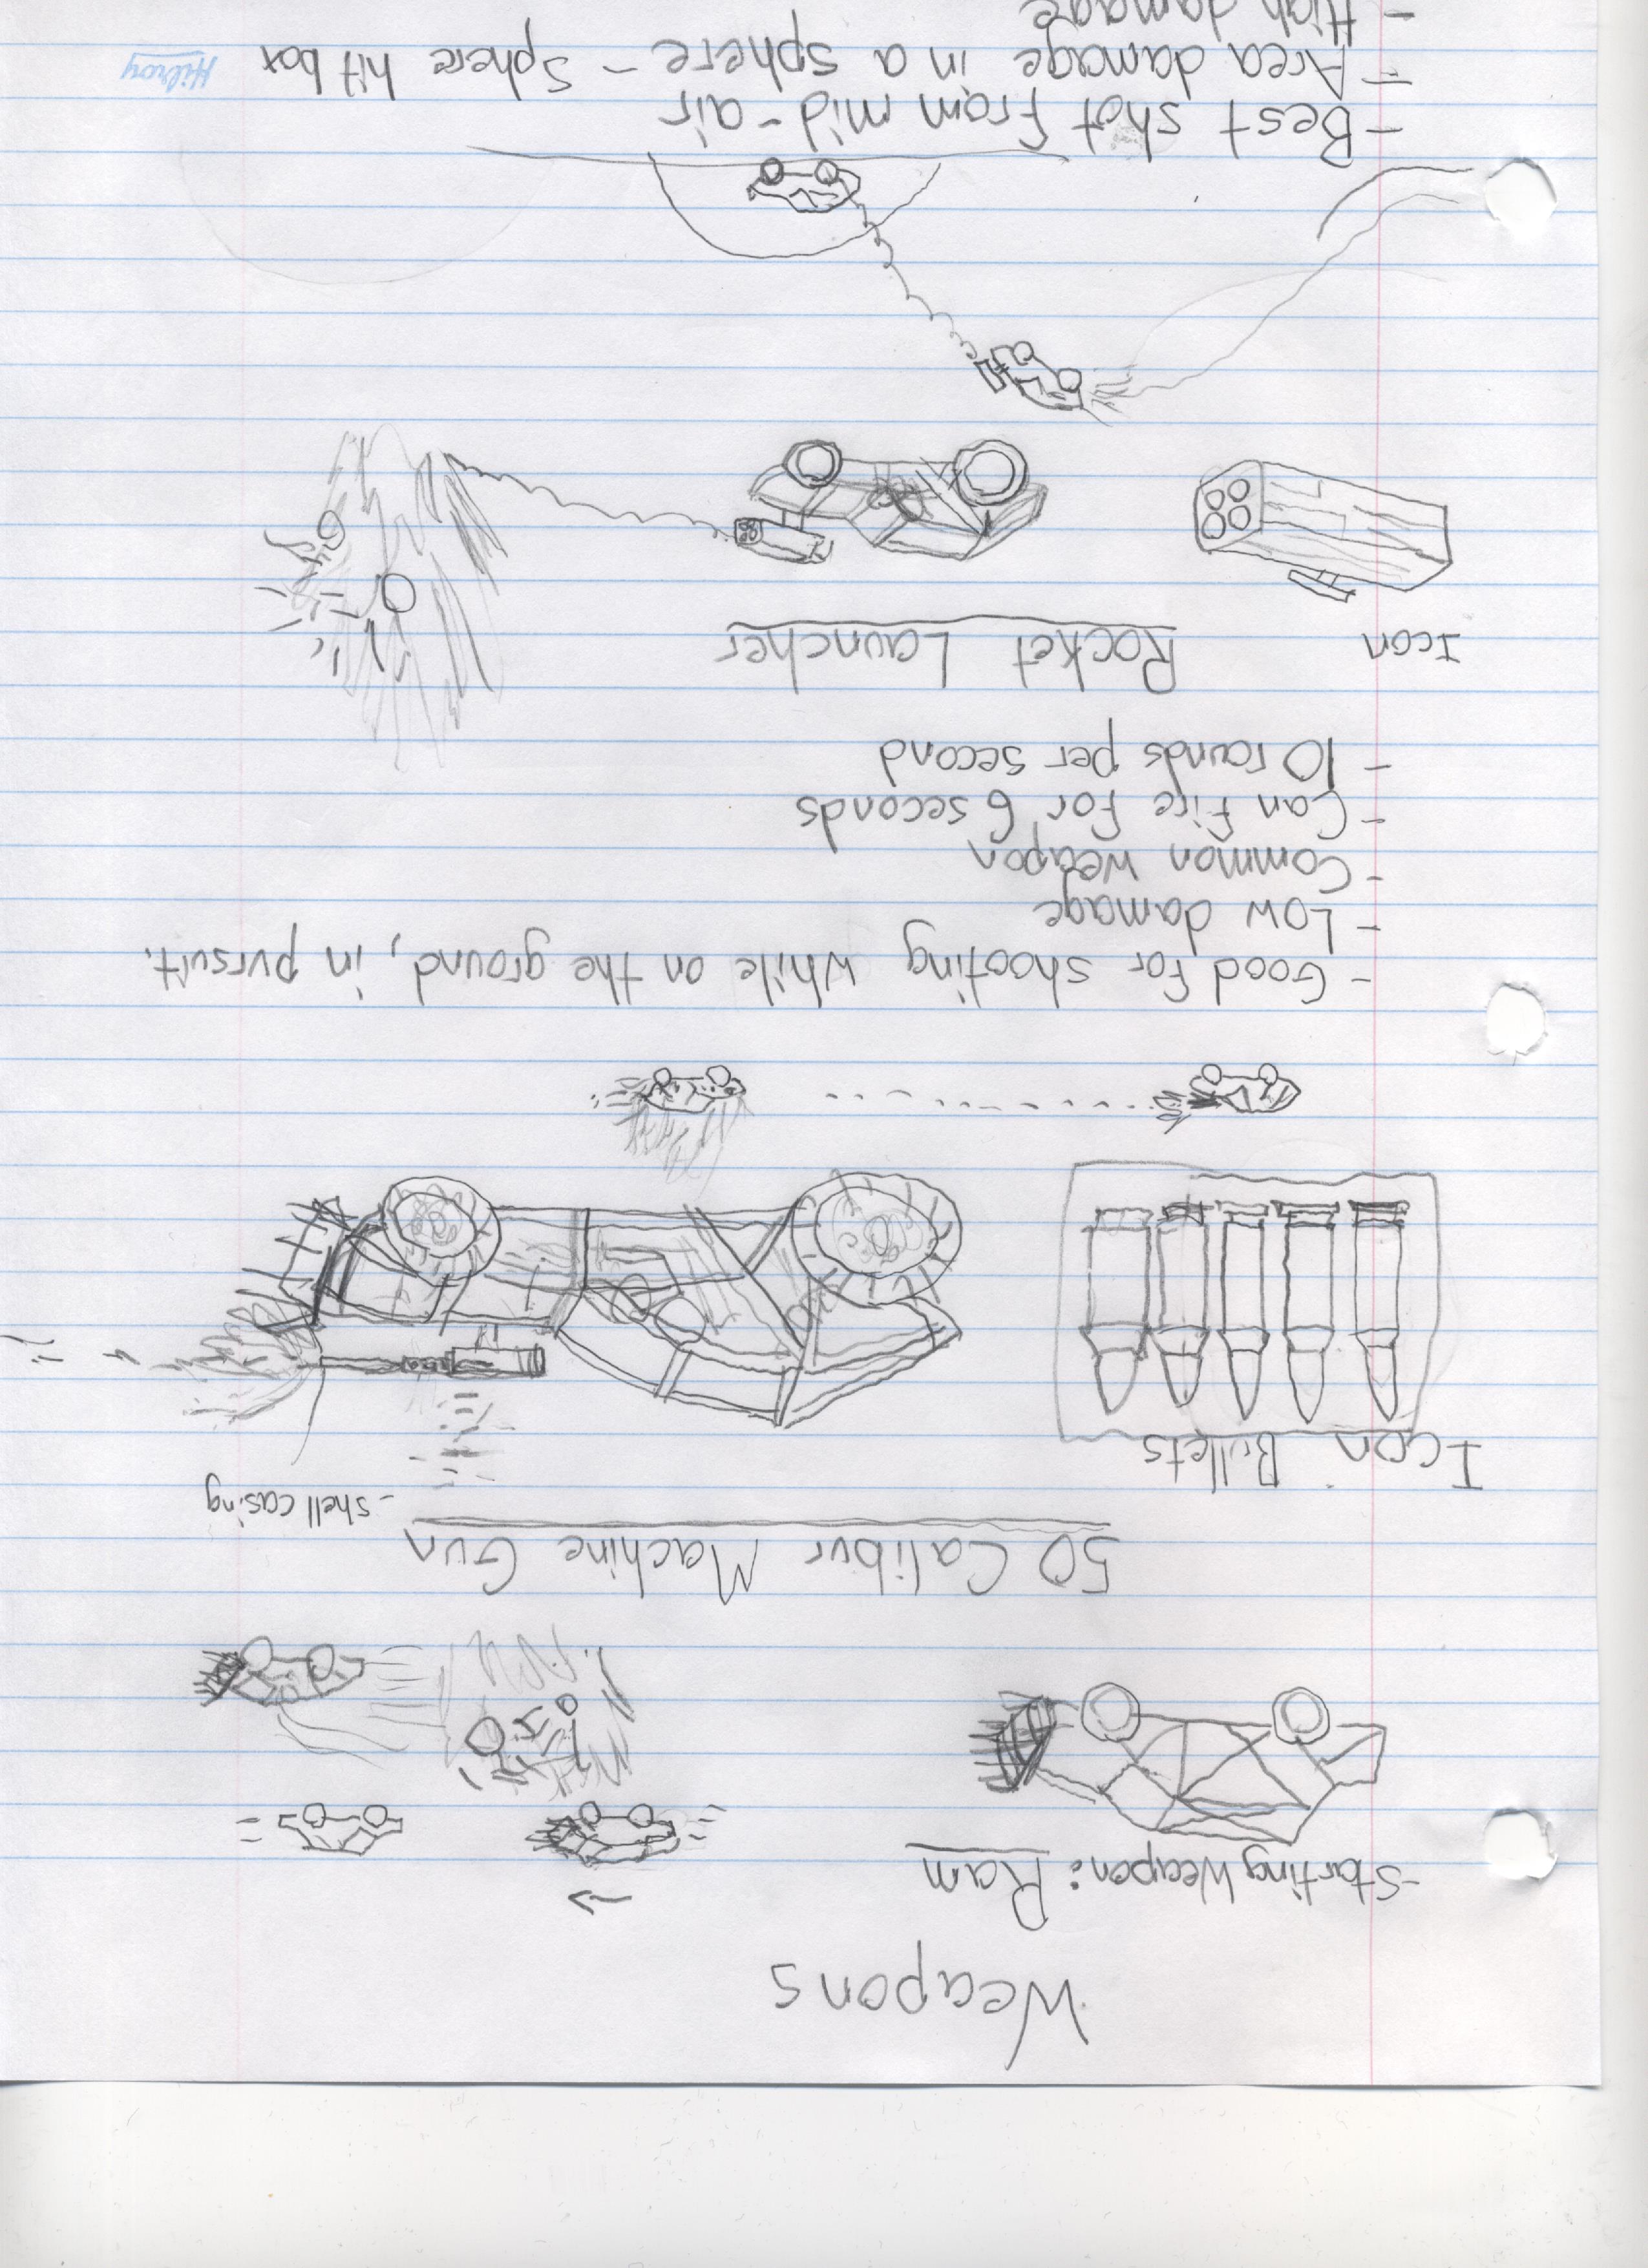 Weapons
-Starting Weapon: Ram
50 Calibur Machine Gun
-shell casing
Icon Bullets
- Good for shooting while on the ground, in pursuit.
- Low damage
- Common weapon
- Can fire for 6 seconds
- 10 rounds per second
Icon
Rocket Launcher
- Best shot from mid-air
- Area damage in a sphere - Sphere hit box
- High damage
Hilroy